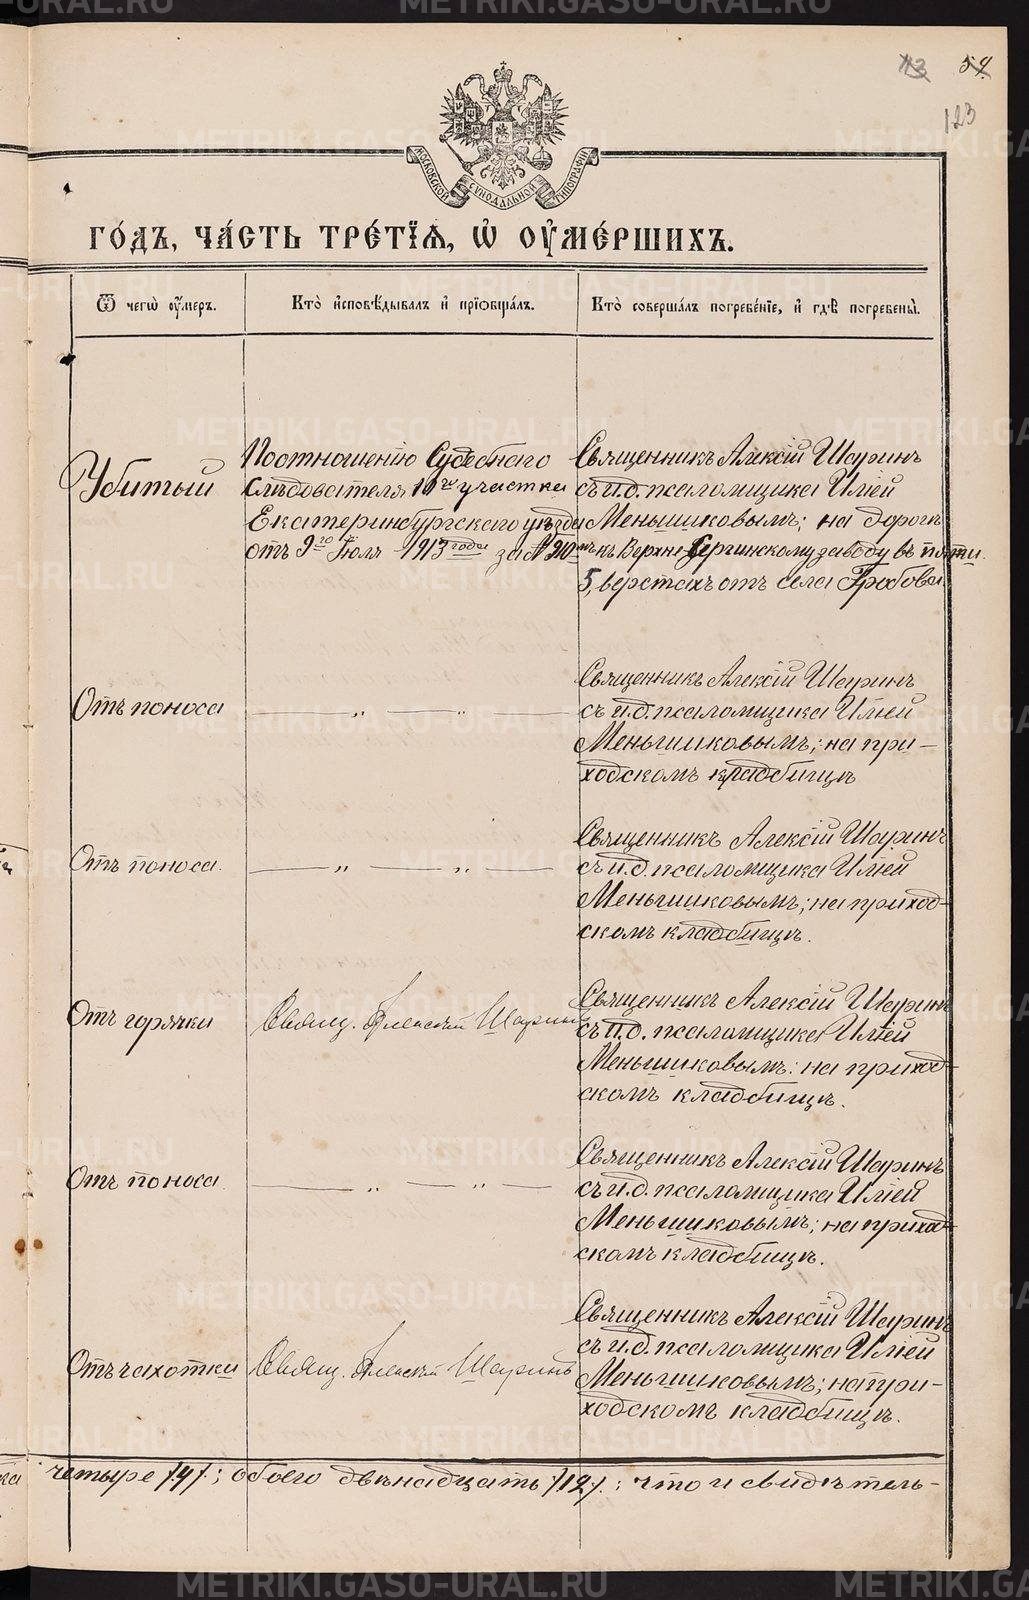 113 59.
123
МОСКОВСКОЙ СУНОДАЛЬНОЙ ТИПОГРАФІИ
ГО́ДЪ, ЧА́СТЬ ТРЕ́ТІЯ, Ѡ҆ ОУ҆МЕ́РШИХЪ.
Ѿ чегѡ̀ оу҆́меръ.
Кто̀ и҆сповѣ́дывалъ и҆ прїѡбща́лъ.
Кто̀ соверша́лъ погребе́нїе, и҆ гдѣ̀ погребены̀.
Убитый
По отношенію Судебнаго
Слѣдователя 10го участка
Екатеринбургскаго уѣзда
отъ 9го Іюля 1913 года за № 210мъ
Священникъ Алексій Шаринъ
съ и.д. псаломщика Иліей
Меньшиковымъ; на дорогѣ
къ Верхне-Сергинскому заводу въ пяти
5, верстахъ отъ села Гробова.
Отъ поноса
— „ — „ —
Священникъ Алексій Шаринъ
съ и.д. псаломщика Иліей
Меньшиковымъ; на при-
ходскомъ кладбищѣ
Отъ поноса.
— „ — „ —
Священникъ Алексій Шаринъ
съ и.д. псаломщика Иліей
Меньшиковымъ; на приход-
скомъ кладбищѣ.
Отъ горячки
Свящ. Алексій Шаринъ
Священникъ Алексій Шаринъ
съ и.д. псаломщика Иліей
Меньшиковымъ: на приход-
скомъ кладбищѣ.
Отъ поноса
— „ — „ —
Священникъ Алексій Шаринъ
съ и.д. псаломщика Иліей
Меньшиковымъ; на приход-
скомъ кладбищѣ.
Отъ чахотки
Свящ. Алексій Шаринъ
Священникъ Алексій Шаринъ
съ и.д. псаломщика Иліей
Меньшиковымъ; на при-
ходскомъ кладбищѣ.
четыре /4/.; обоего двѣнадцать /12/.: что и свидѣтель-
METRIKI.GASO-URAL.RU